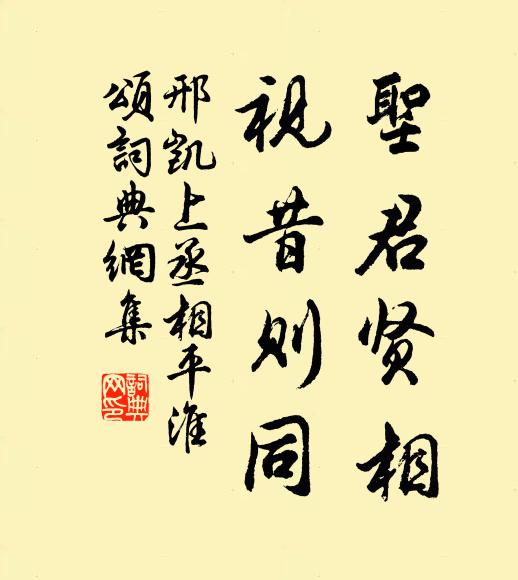 聖君贤相
視昔则同
邢凱上丞相平淮
頌詞典網集
詞典
网印